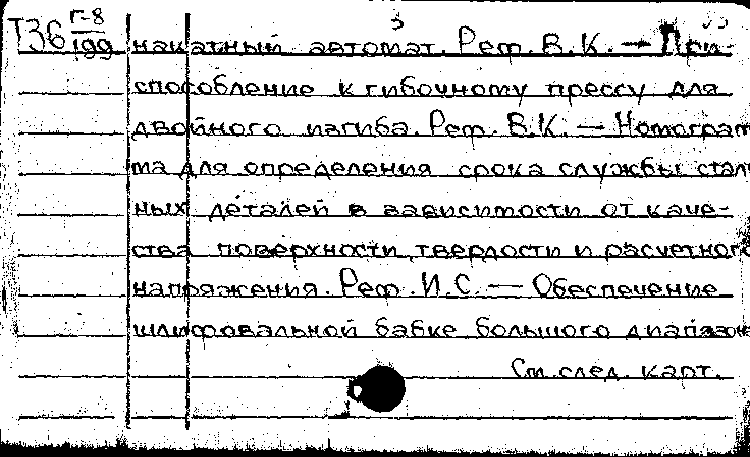 3
Т36 Г-8
199 накатный автомат. Реф. В.К. — При-
способление к гибочному прессу для
двойного изгиба. Реф. В.К. — Номограм
ма для определения срока службы сталь
ных деталей в зависимости от каче-
ства поверхности, твердости и расчетного
напряжения. Реф. И.С. — Обеспечение
шлифовальной бабке большого диапазона
См. след. карт.